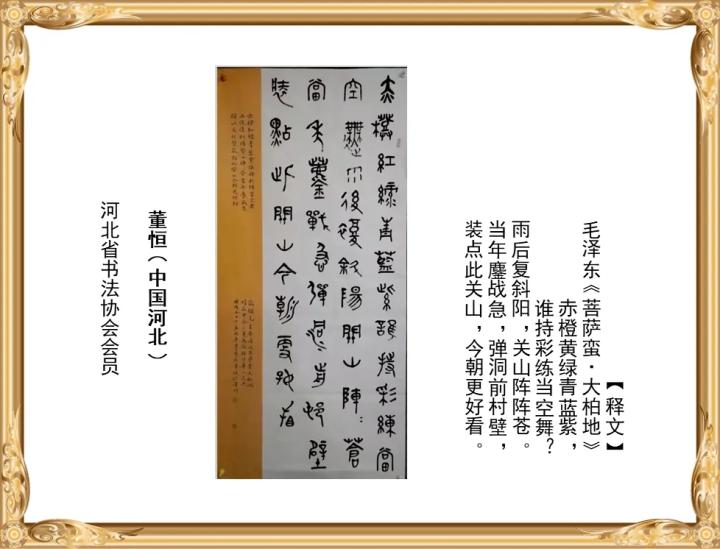 【释文】
毛泽东《菩萨蛮·大柏地》
赤橙黄绿青蓝紫，
谁持彩练当空舞？
雨后复斜阳，关山阵阵苍。
当年鏖战急，弹洞前村壁，
装点此关山，今朝更好看。
赤橙紅綠青藍紫誰持彩練當
空舞雨後復斜陽關山陣〻蒼
當年鏖戰急彈洞前邨壁
裝點此關山今朝更好看
董恒（中国河北）
河北省书法协会会员